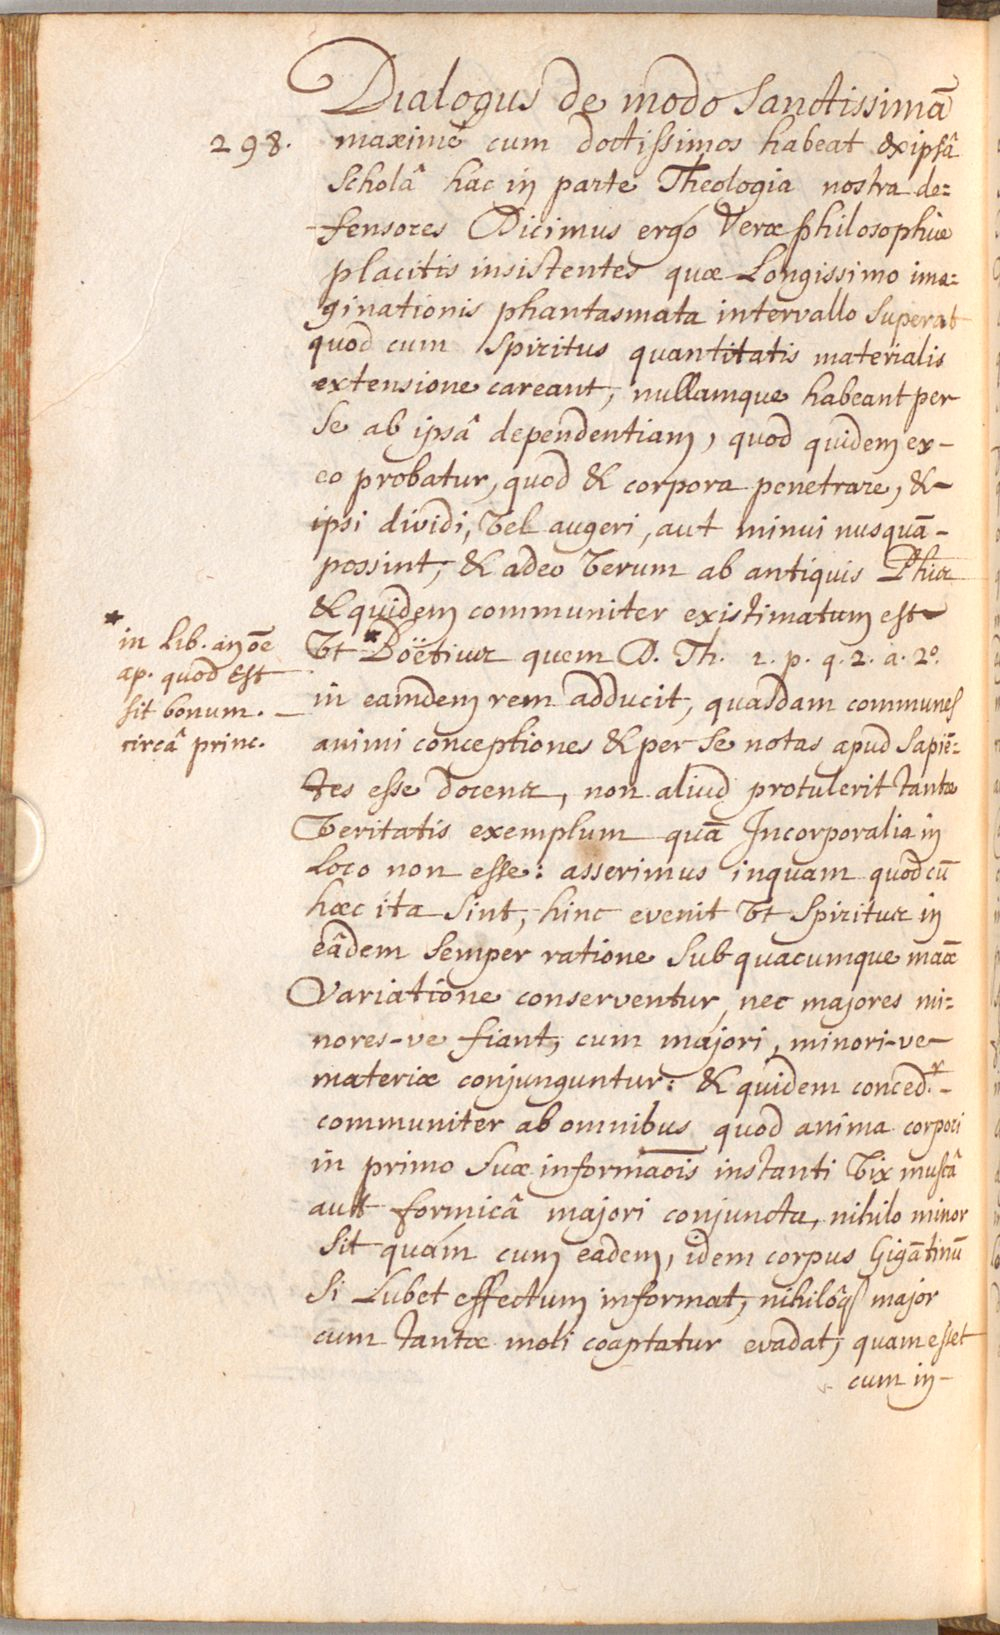 Dialogus de modo Sanctissimā
298.
maximè cum doctissimos habeat ex ipsâ
Scholâ hac in parte Theologia nostra de=
fensores Dicimus ergo Veræ Philosophiæ
placitis insistentes quæ Longissimo ima=
ginationis phantasmata intervallo Superat
quod cum Spiritus quantitatis materialis
extensione careant, nullamque habeant per
Se ab ipsâ dependentiam, quod quidem ex-
eo probatur, quod & corpora penetrare, &
ipsi dividi, vel augeri, aut minui nusquā-
possint, & adeo verum ab antiquis
& quidem communiter existimatum est
Vt *Boëtius quem D. Th. 1. p. q. 2. a. 2º.
in eamdem rem adducit, quasdam communes
animi conceptiones & per Se notas apud Sapiē=
tes esse docens, non aliud protulerit tantæ
Veritatis exemplum quā Incorporalia in
Loco non esse: asserimus inquam quod cū
hæc ita Sint, hinc evenit Vt Spiritus in
eâdem Semper ratione Sub quacumque maæ
Variatione conserventur, nec majores mi=
nores-ve fiant, cum majori, minori-ve
materiæ conjunguntur: & quidem conced.r-
communiter ab omnibus quod anima corpori
in primo Suæ informaōis instanti Vix muscâ
aut formicâ majori conjuncta, nihilo minor
Sit quám cum eadem, idem corpus Gigātinū
Si Lubet effectum informat, nihilôq̃ major
cum tantæ moli coaptatur evadat, quam esset
cum in-
*
in Lib. an oē
ap. quod Est
sit bonum.
circâ princ.